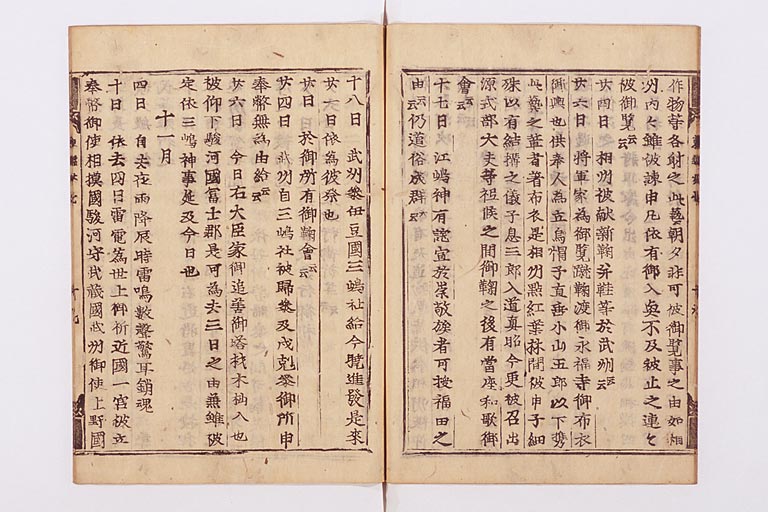 作物等各射之此藝朝夕非可被御覽事之由如畑
州內々雖被諫申凡依有御入興不及被止之連々
被御覽云云
廿四日 相州被献新鞠并鞋等於武州云云
廿六日 將軍家為御覽蹴鞠渡御永福寺御布衣
御輿也供奉人為立烏帽子直垂小山五郎以下勇
此藝之輩者著布衣是相州點紅葉林間被申子細
殊以有結構之儀子息三郎入道真昭今更被召出
源式部大夫等祖候之間御鞠之後有當座和歌御
會云云
十七日 江嶋神有託宣於崇敬族者可授福田之
由云云仍道俗成群云云
十八日 武州參伊豆國三嶋社給今曉進發是來
廿六日依為彼祭也
廿日 於御所有御鞠會云云
廿四日 武州自三嶋社被歸參及戌剋參御所申
奉幣無為由給云云
廿六日 今日右大臣家御追善御塔材木杣入也
被仰下駿河國富士郡是可為去三日之由兼雖被
定依三嶋神事延及今日也
十一月
四日 自去夜雨降辰時雷鳴數聲驚耳銷魂
十日 依去四日雷電為世上御祈近國一宮被立
奉幣御使相摸國駿河守武藏國武州御使上野國